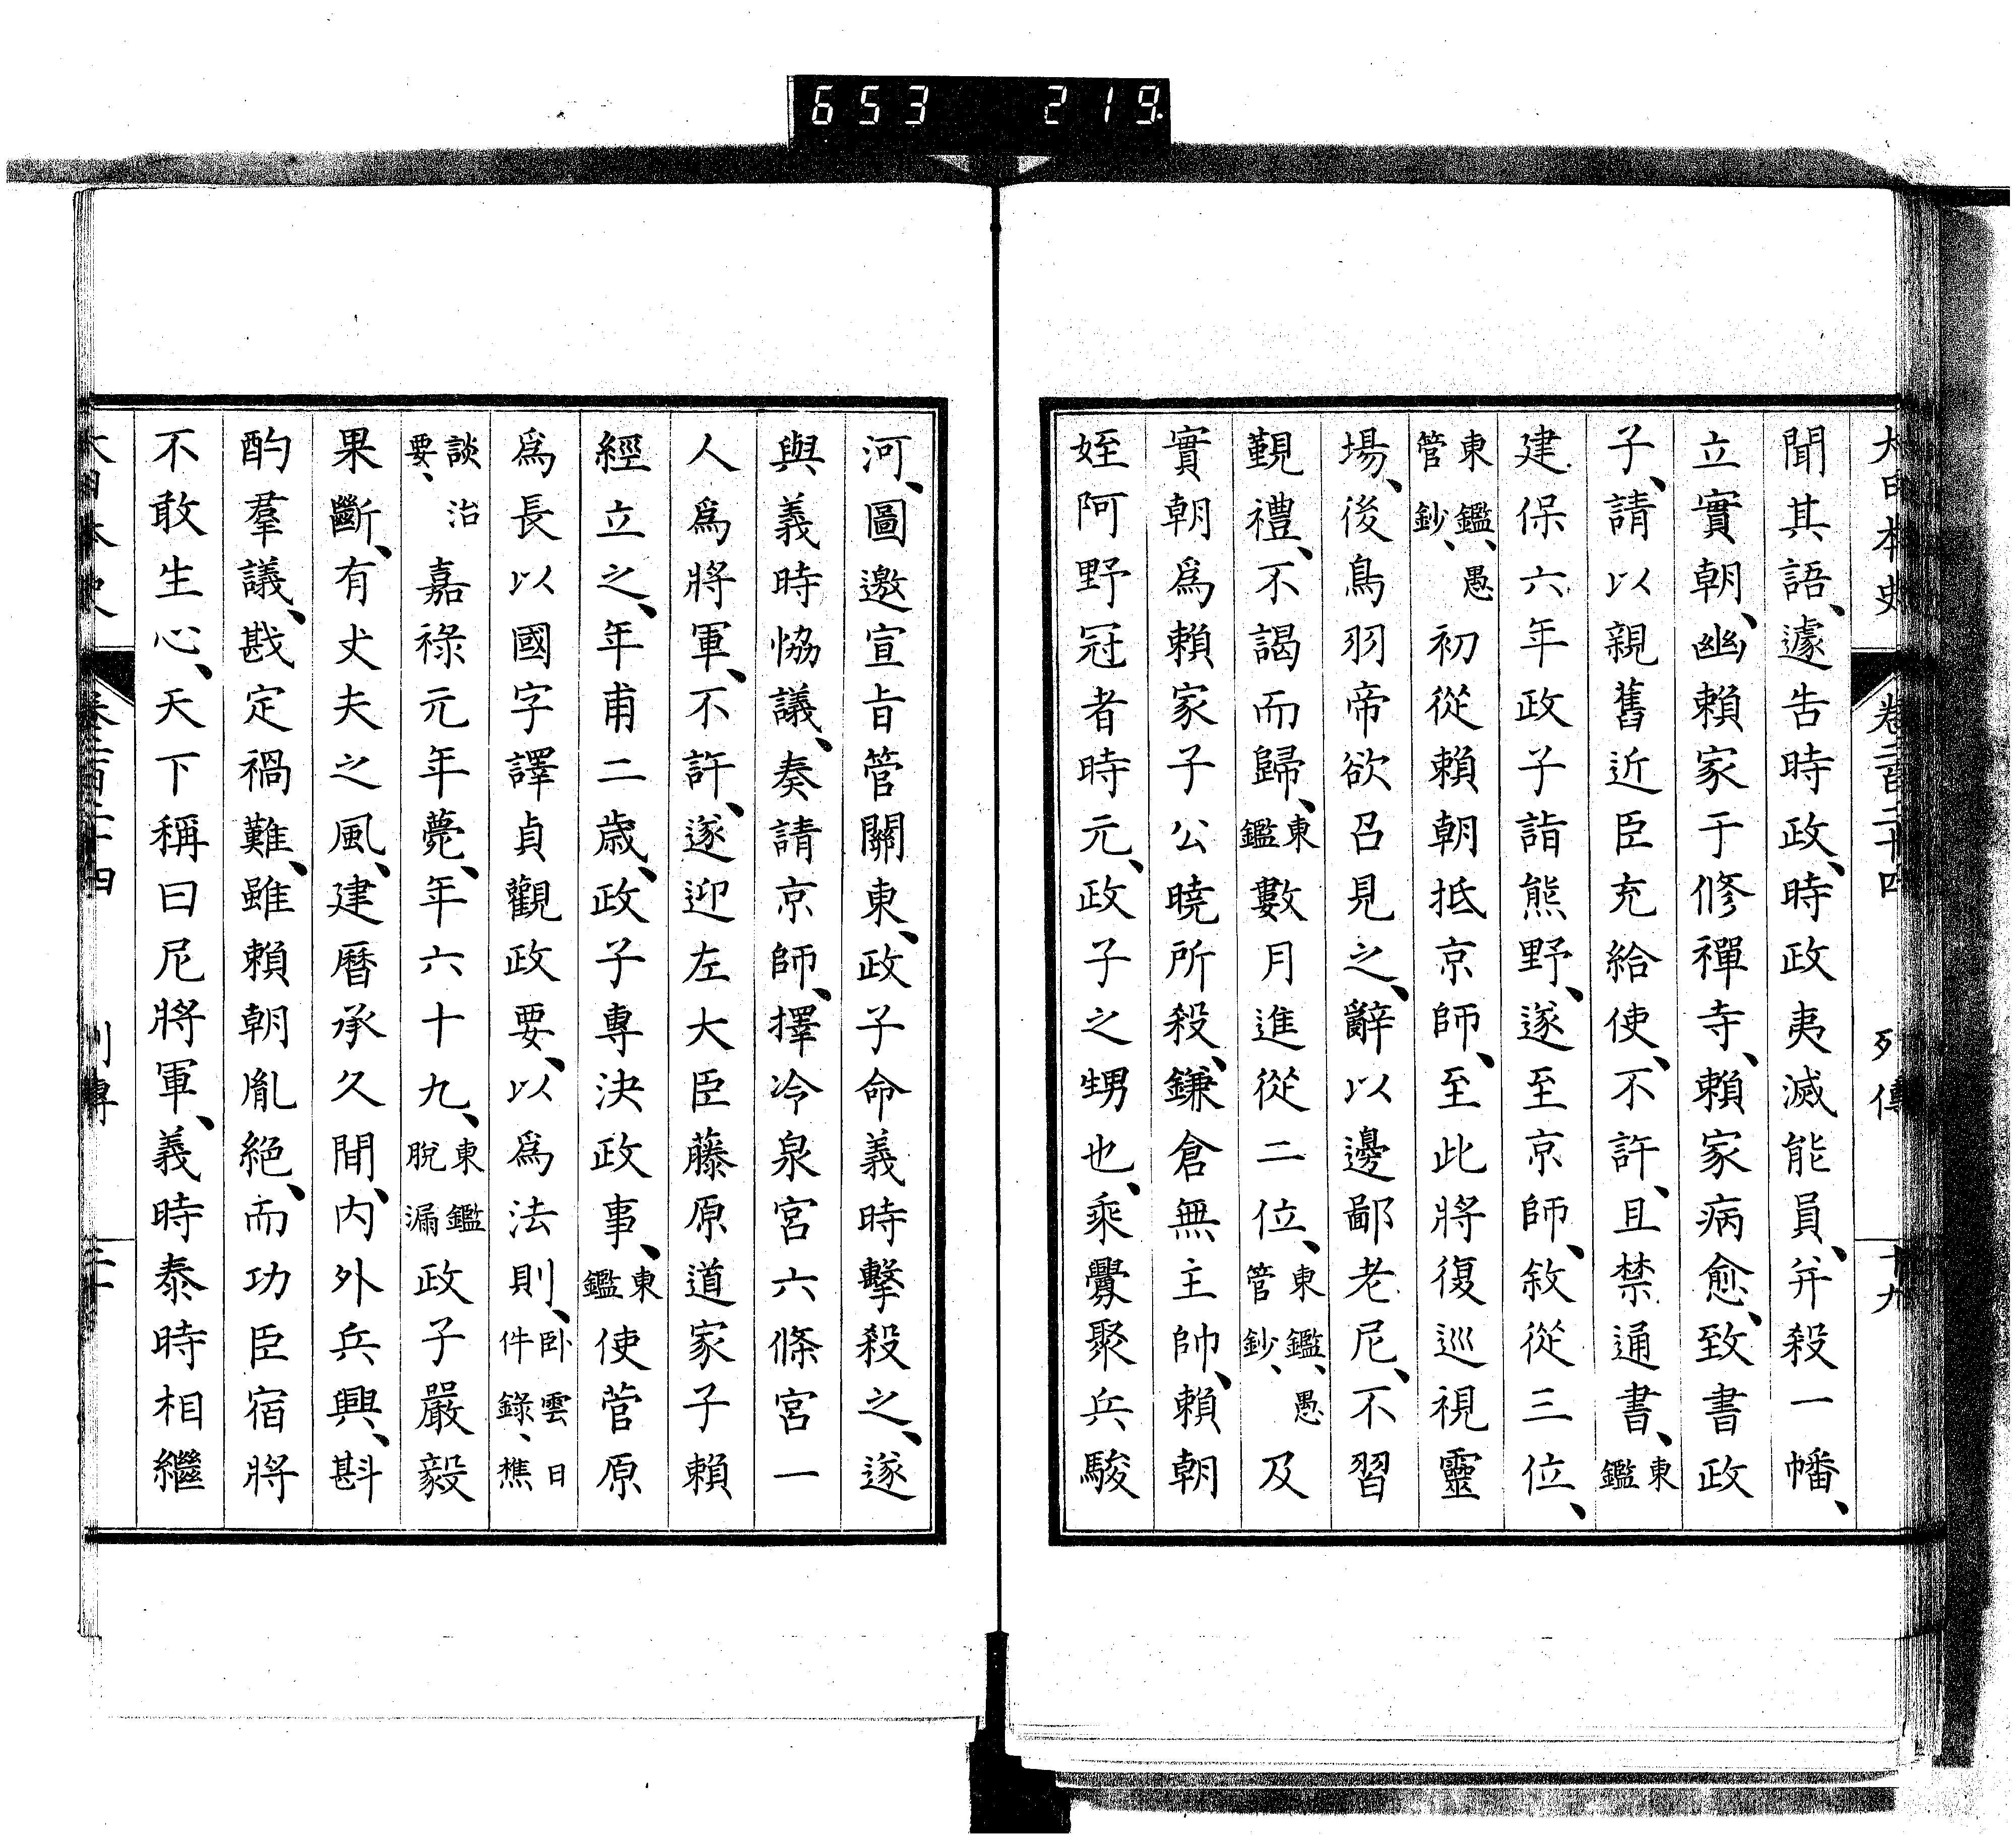 653 219
大日本史 卷二百二十四 列傳 十九
聞其語、遽告時政、時政夷滅能員、幷殺一幡、
立實朝、幽賴家于修禪寺、賴家病愈、致書政
子、請以親舊近臣充給使、不許、且禁通書、東鑑
建保六年政子詣熊野、遂至京師、敘從三位、
東鑑、愚管鈔、初從賴朝抵京師、至此將復巡視靈
場、後鳥羽帝欲召見之、辭以邊鄙老尼、不習
覲禮、不謁而歸、東鑑數月進從二位、東鑑、愚管鈔、及
實朝爲賴家子公曉所殺、鎌倉無主帥、賴朝
姪阿野冠者時元、政子之甥也、乘釁聚兵駿
河、圖邀宣旨管關東、政子命義時擊殺之、遂
與義時恊議、奏請京師、擇冷泉宮六條宮一
人爲將軍、不許、遂迎左大臣藤原道家子賴
經立之、年甫二歳、政子專決政事、東鑑使菅原
爲長以國字譯貞觀政要、以爲法則、臥雲日件錄、樵
談治要、嘉祿元年薨、年六十九、東鑑脫漏政子嚴毅
果斷、有丈夫之風、建曆承久間、內外兵興、斟
酌羣議、戡定禍難、雖賴朝胤絕、而功臣宿將
不敢生心、天下稱曰尼將軍、義時泰時相繼
大日本史 卷二百二十四 列傳 二十